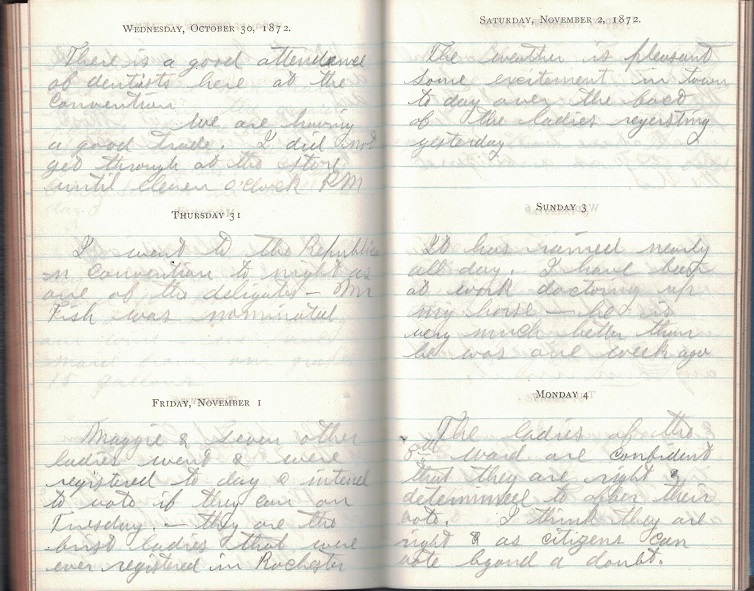 WEDNESDAY, OCTOBER 30, 1872.
There is a good attendance
of dentists here at the
Convention
We are having
a good trade. I did not
get through at the store
until eleven o'clock P.M
THURSDAY 31
I went to the Republic
an Convention to night as
one of the deligates – Mr
Fish was nominated
FRIDAY, NOVEMBER 1
Maggie & seven other
ladies went & were
registered to day & intend
to vote if they can on
Tuesday. – they are the
first ladies that were
ever registered in Rochester
SATURDAY, NOVEMBER 2, 1872.
The weather is pleasant
Some excitement in town
to day over the fact
of the ladies regersting
yesterday
SUNDAY 3
It has rained nearly
all day. I have been
at work doctoring up
my horse – he is
very much better than
he was one week ago
MONDAY 4
The ladies of the
8th ward are confident
that they are right &
determined to offer their
vote. I think they are
right & as citizens can
vote byond a doubt.